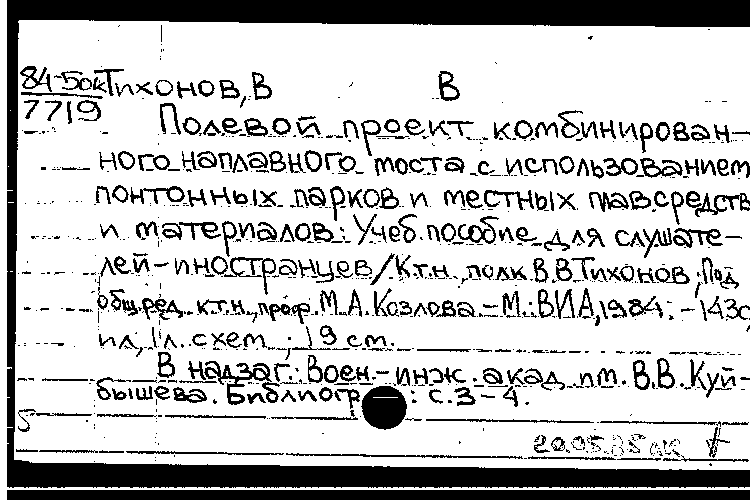 84-5ок Тихонов, В В
7719
Полевой проект комбинирован-
ного наплавного моста с использованием
понтонных парков и местных плав.средств
и материалов: Учеб. пособие для слушате-
лей-иностранцев/К.т.н., полк В.В Тихонов; Под
общ.ред. к.т.н., проф. М.А. Козлова.-М.: ВИА, 1984.-143с,
ил, 1 л. схем ; 19 см.
В надзаг.: Воен.-инж. акад. им. В.В. Куй-
бышева. Библиогр : с.3-4.
5
20.05.85